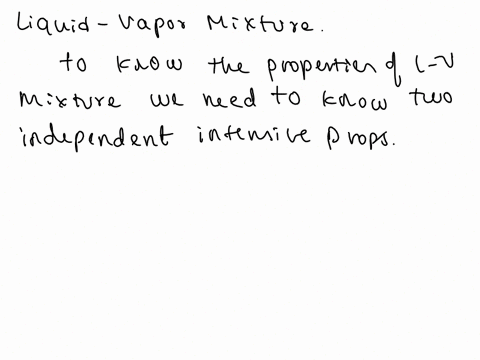 Liquid-Vapor Mixture.
to know the properties of L-V
Mixture we need to know two
independent intensive props.